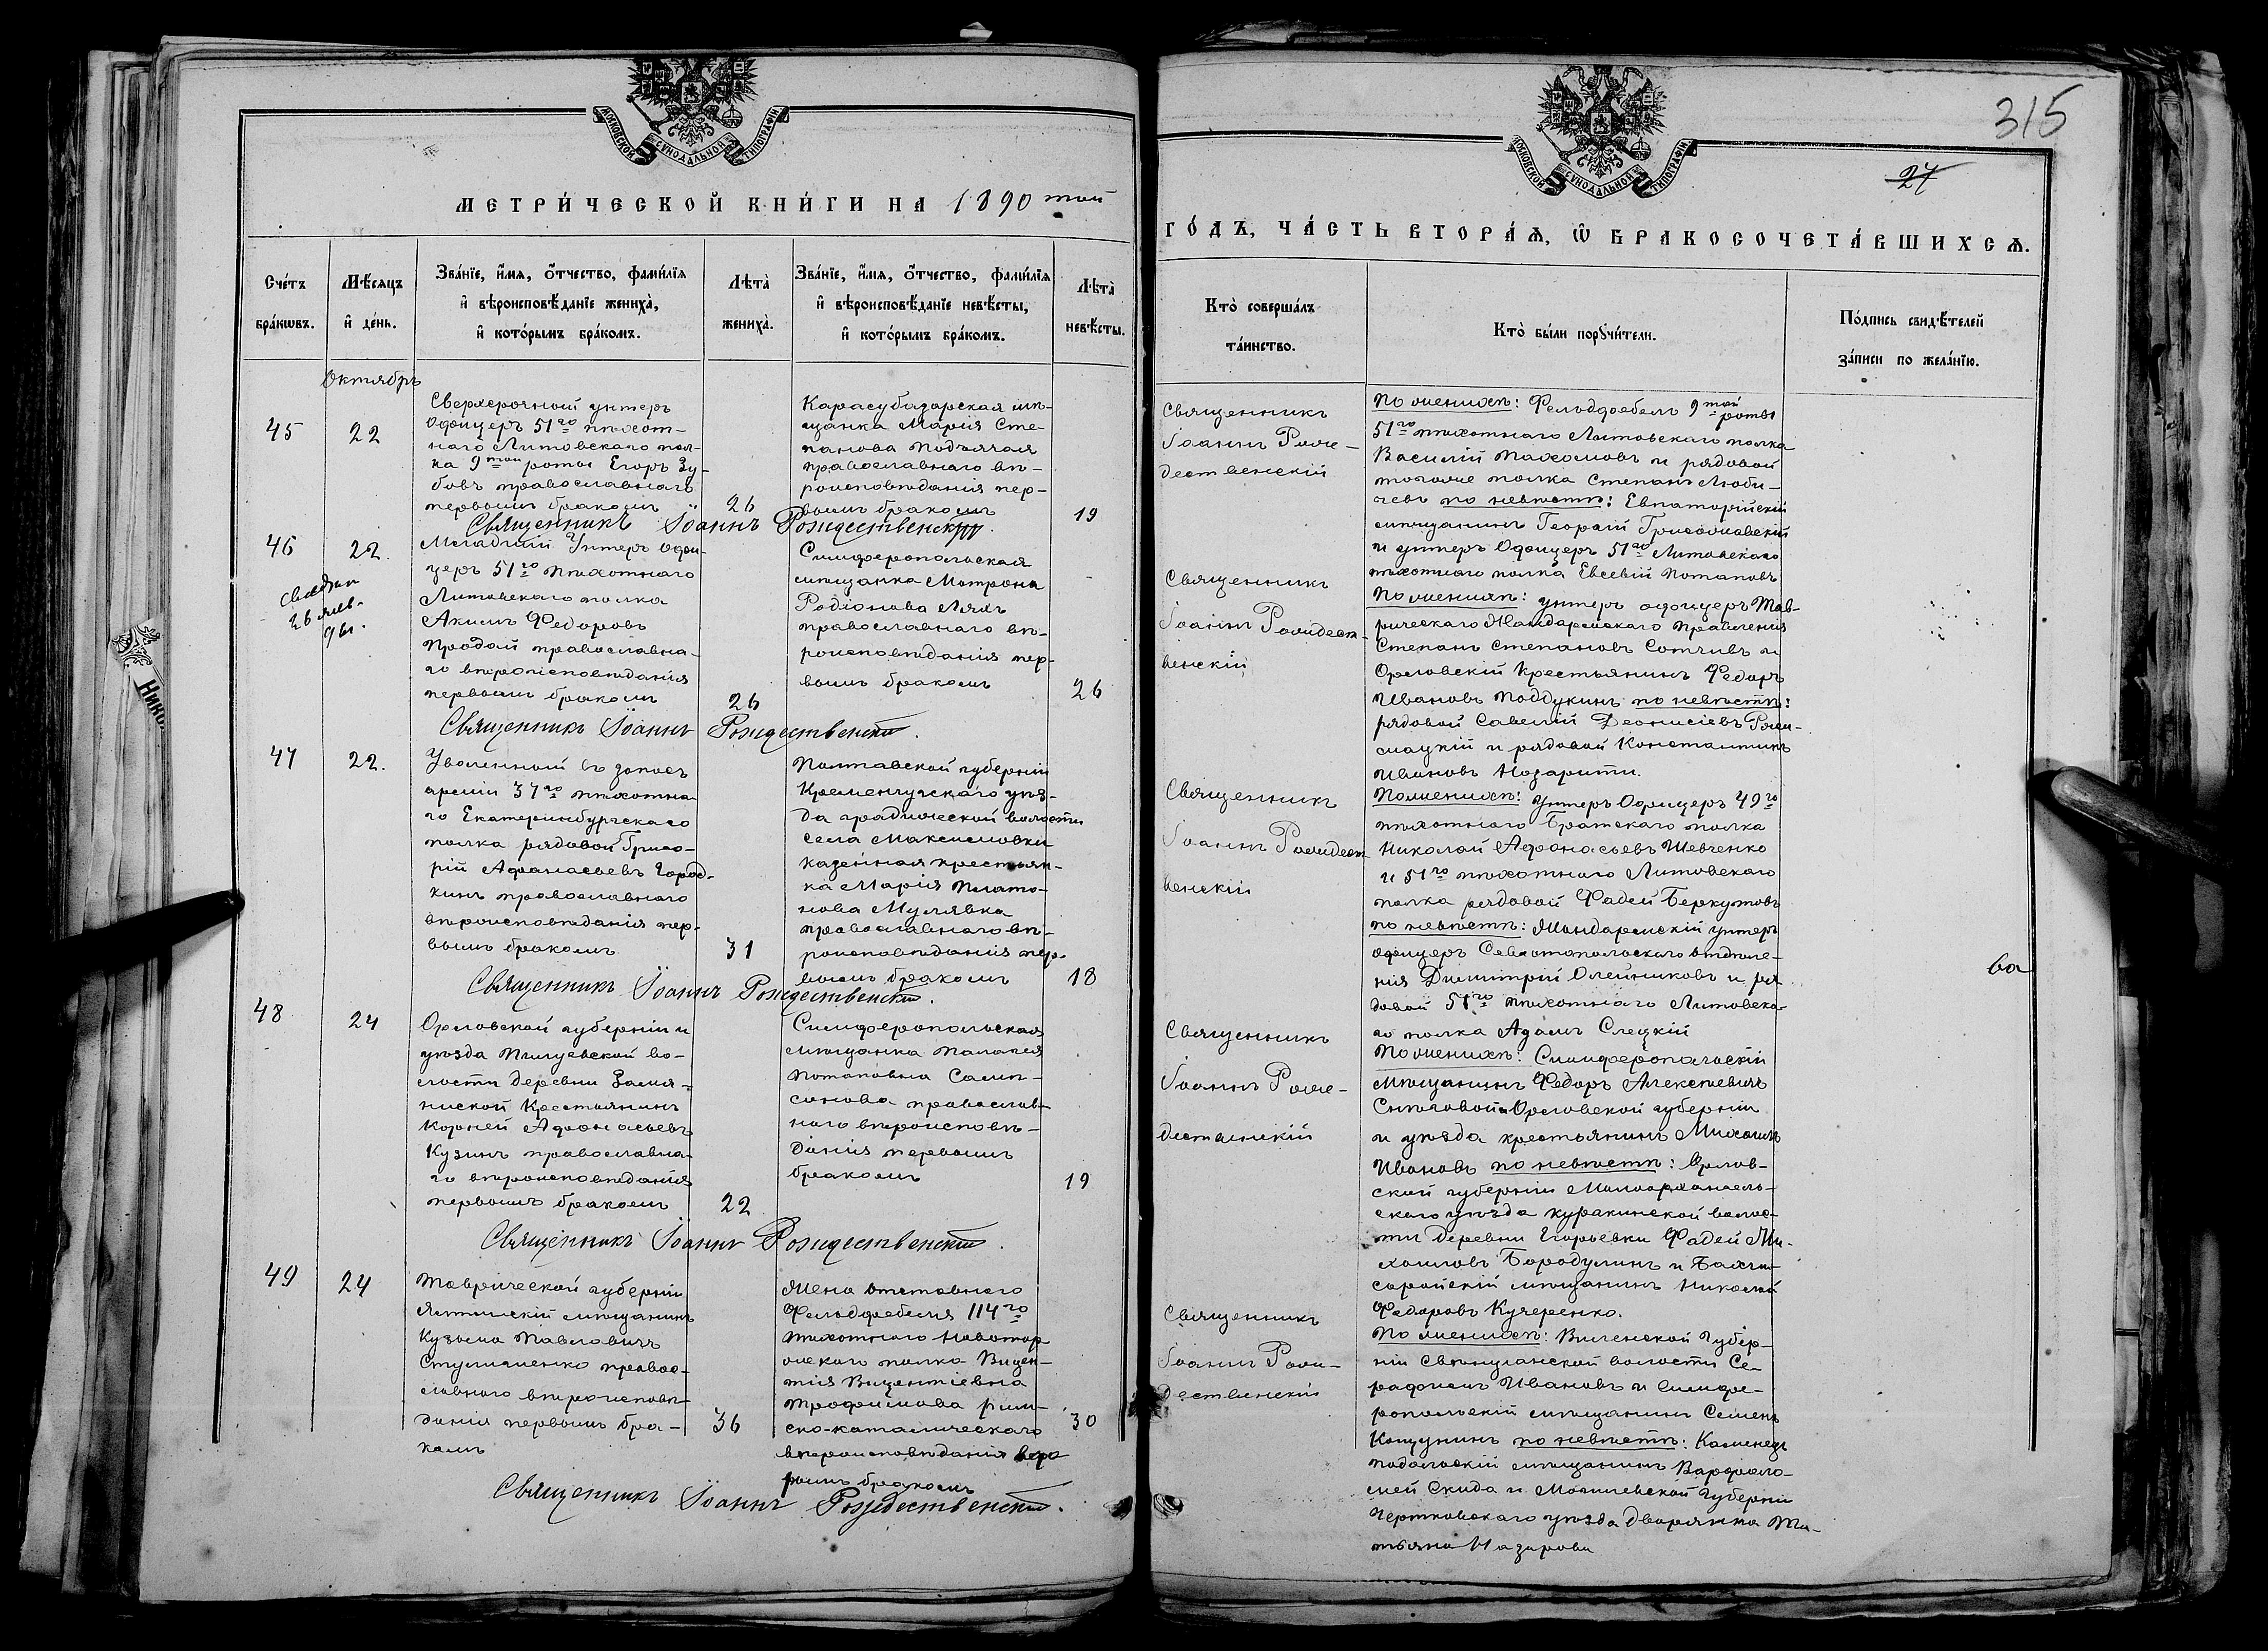 МОСКОВСКОЙ СѴНОДАЛЬНОЙ ТИПОГРАФІИ
МЕТРИ́ЧЕСКОЙ КНИ́ГИ НА 1890 той
Сче́тъ бра́кѡвъ.
Мѣ́сяцъ и҆ де́нь.
Зва́нїе, и҆́мѧ, ѻ҆́тчество, фами́лїѧ
и҆ вѣроисповѣ́данїе жениха̀,
и҆ кото́рымъ бра́комъ.
Лѣта̀ жениха̀.
Зва́нїе, и҆́мѧ, ѻ҆́тчество, фами́лїѧ
и҆ вѣроисповѣ́данїе невѣ́сты,
и҆ кото́рымъ бра́комъ.
Лѣта̀ невѣ́сты.
Октябрь
45
22
Сверхсрочный унтеръ
Офицеръ 51го пѣхот-
наго Литовскаго пол-
ка 9той роты Егоръ Зу-
бовъ православнаго
первымъ бракомъ
26
Карасубазарская мѣ-
щанка Марія Сте-
панова Подъячая
православнаго вѣ-
роисповѣданія пер-
вымъ бракомъ
19
Священникъ Іоаннъ Рождественскій.
46
22.
26 янв.
91г.
Младшій Унтеръ офи-
церъ 51го пѣхотнаго
Литовскаго полка
Акимъ Федоровъ
Продай православна-
го вѣроисповѣданія
первымъ бракомъ
26
Симферопольская
мѣщанка Матрона
Родіонова Ляхъ
православнаго вѣ-
роисповѣданія пер-
вымъ бракомъ
26
Священникъ Іоаннъ Рождественскій.
47
22.
Уволенный въ запасъ
арміи 37го пѣхотна-
го Екатеринбургскаго
полка рядовой Григо-
рій Афанасьевъ Город-
кинъ православнаго
вѣроисповѣданія пер-
вымъ бракомъ
31
Полтавской губерніи
Кременчугскаго уѣз-
да градижской волости
села Максимовки
казенная крестьян-
ка Марія Плато-
нова Мулявка
православнаго вѣ-
роисповѣданія пер-
вымъ бракомъ
18
Священникъ Іоаннъ Рождественскій.
48
24
Орловской губерніи и
уѣзда Пилуевской во-
лости деревни Замя-
ниской Крестьянинъ
Корней Афонасьевъ
Кузинъ православна-
го вѣроисповѣданія
первымъ бракомъ
22
Симферопольская
мѣщанка Палагея
Потаповна Самп-
сонова православ-
наго вѣроисповѣ-
данія первымъ
бракомъ
19
Священникъ Іоаннъ Рождественскій.
49
24
Таврической губерніи
Ялтинскій мѣщанинъ
Кузьма Павловичъ
православ-
славнаго вѣроисповѣ-
данія первымъ бра-
комъ
36
Жена отставнаго
Фельдфебеля 114го
пѣхотнаго Новотор-
жскаго полка Вицен-
тія Вицентіевна
Трофимова рим-
ско-католическаго
вѣроисповѣданія вто
рымъ бракомъ
30
Священникъ Іоаннъ Рождественскій.
315
27
МОСКОВСКОЙ СѴНОДАЛЬНОЙ ТИПОГРАФІИ
ГО́ДЪ, ЧА́СТЬ ВТОРА́Ѧ, Ѡ҆ БРАКОСОЧЕТА́ВШИХСѦ.
Кто̀ соверша́лъ та́инство.
Кто̀ бы́ли порꙋчи́тели.
По́дпись свидѣ́телей за́писи по жела́нїю.
Священникъ
Іоаннъ Рож-
дественскій
По женихѣ: Фельдфебель 9той роты
51го пѣхотнаго Литовскаго полка
Василій Пахомовъ и рядовой
тогоже полка Степанъ Люби-
чевъ по невѣстѣ: Евпаторійскій
мѣщанинъ Георгій
и унтеръ Офицеръ 51го Литовскаго
пѣхотнаго полка Евсевій Потаповъ
Священникъ
Іоаннъ Рождест-
венскій
По женихѣ: унтеръ офицеръ Тав-
рическаго Жандармскаго Правленія
Степанъ Степановъ Сотчивъ и
Орловскій Крестьянинъ Федоръ
Ивановъ Поддукинъ по невѣстѣ:
рядовой Савелій Деонисіевъ
и рядовой Константинъ
Ивановъ
Священникъ
Іоаннъ Рождест
венскій
По женихѣ: Унтеръ Офицеръ 49го
пѣхотнаго Братскаго полка
Николай Афонасьевъ Шевченко
и 51го пѣхотнаго Литовскаго
полка рядовой Фадей Беркутовъ
по невѣстѣ: Жандармскій унтеръ
офицеръ Севастопольскаго отдѣле-
нія Димитрій Олейниковъ и ря
довой 51го пѣхотнаго Литовска-
го полка Адамъ Слецкій
ба
Священникъ
Іоаннъ Рож-
дественскій
По женихѣ: Симферопольскій
мѣщанинъ Федоръ Алексѣевичъ
Снѣговой и Орловской губерніи
и уѣзда крестьянинъ Михаилъ
Ивановъ по невѣстѣ: Орлов-
ской губерніи Малоархангель-
скаго уѣзда куракинской волос-
ти деревни Егорьевки Фадей Ми-
хаиловъ Бородулинъ и Бахчи-
сарайскій мѣщанинъ Николай
Федоровъ Кучеренко.
Священникъ
Іоаннъ Рож-
дественскій
По женихѣ: Виленской Губер-
ніи волости Се-
рафимъ Ивановъ и Симфе-
ропольскій мѣщанинъ Семенъ
по невѣстѣ: Каменецъ
подольскій мѣщанинъ Варфоло-
мей Скида и Могилевской Губерніи
уѣзда дворянка Та-
тьяна Назарова